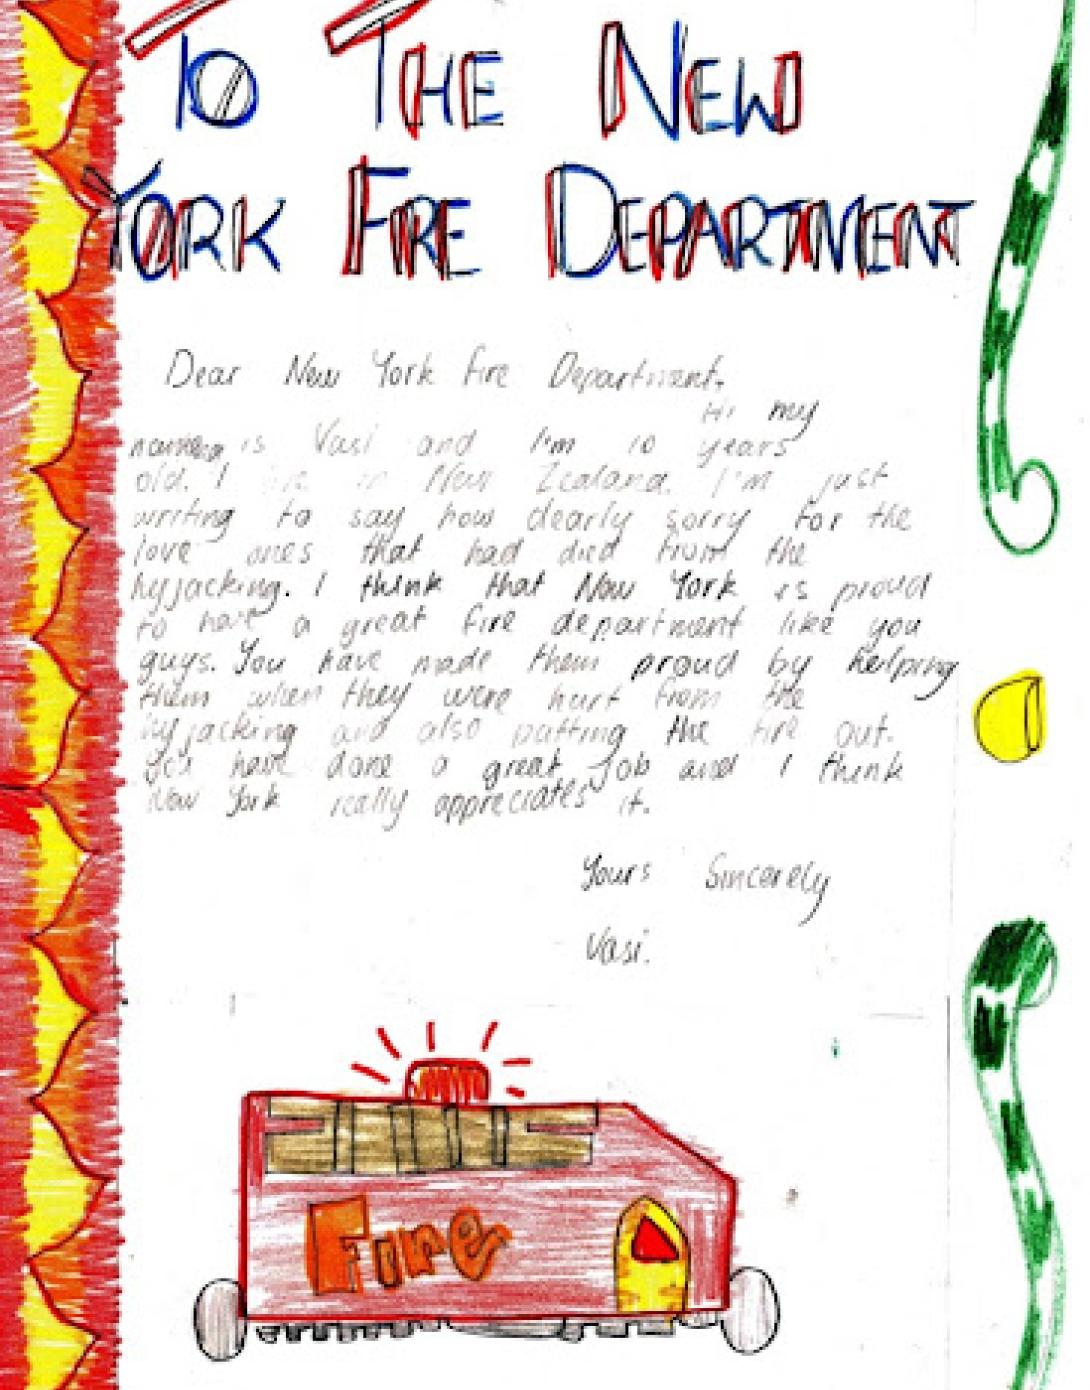 TO THE NEW
YORK FIRE DEPARTMENT
Dear New York Fire Department.
Hi my
is Vasi and I'm 10 years
old. I live in New Zealand. I'm just
writing to say how dearly sorry for the
love ones that had died from the
hyjacking. I think that New York is proud
to have a great fire department like you
guys. You have made them proud by helping
them when they were hurt from the
hyjacking and also putting the fire out.
You have done a great job and I think
New York really appreciates it.
Yours Sincerely
Vasi.
Fire